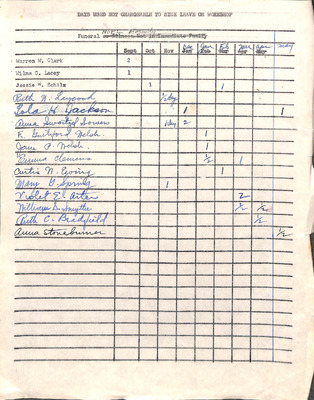 DAYS USED NOT CHARGEABLE TO SICK LEAVE OR WORKSHOP
Funeral or Illness Not in Immediate Family
Sept Oct Nov Dec Jan Feb Mar Apr May
Warren W. Clark 2
Wilma C. Lacey 1
Jessie H. Schilz 1 1
Ruth N. 1/2 day
Lola H Jackson 1 1
Anna Swartzel 1 day 2
F. Guilford Welsh 1
Jane P. Welsh 1
Emma Clemens 1/2 1
Curtis N. Ewing 1
Mary G. 1
Violet E. Arter 2
William D. Smythe 1/2 1/2
Ruth C. Bradfield 1/2
Anna Stoneburner 1/2